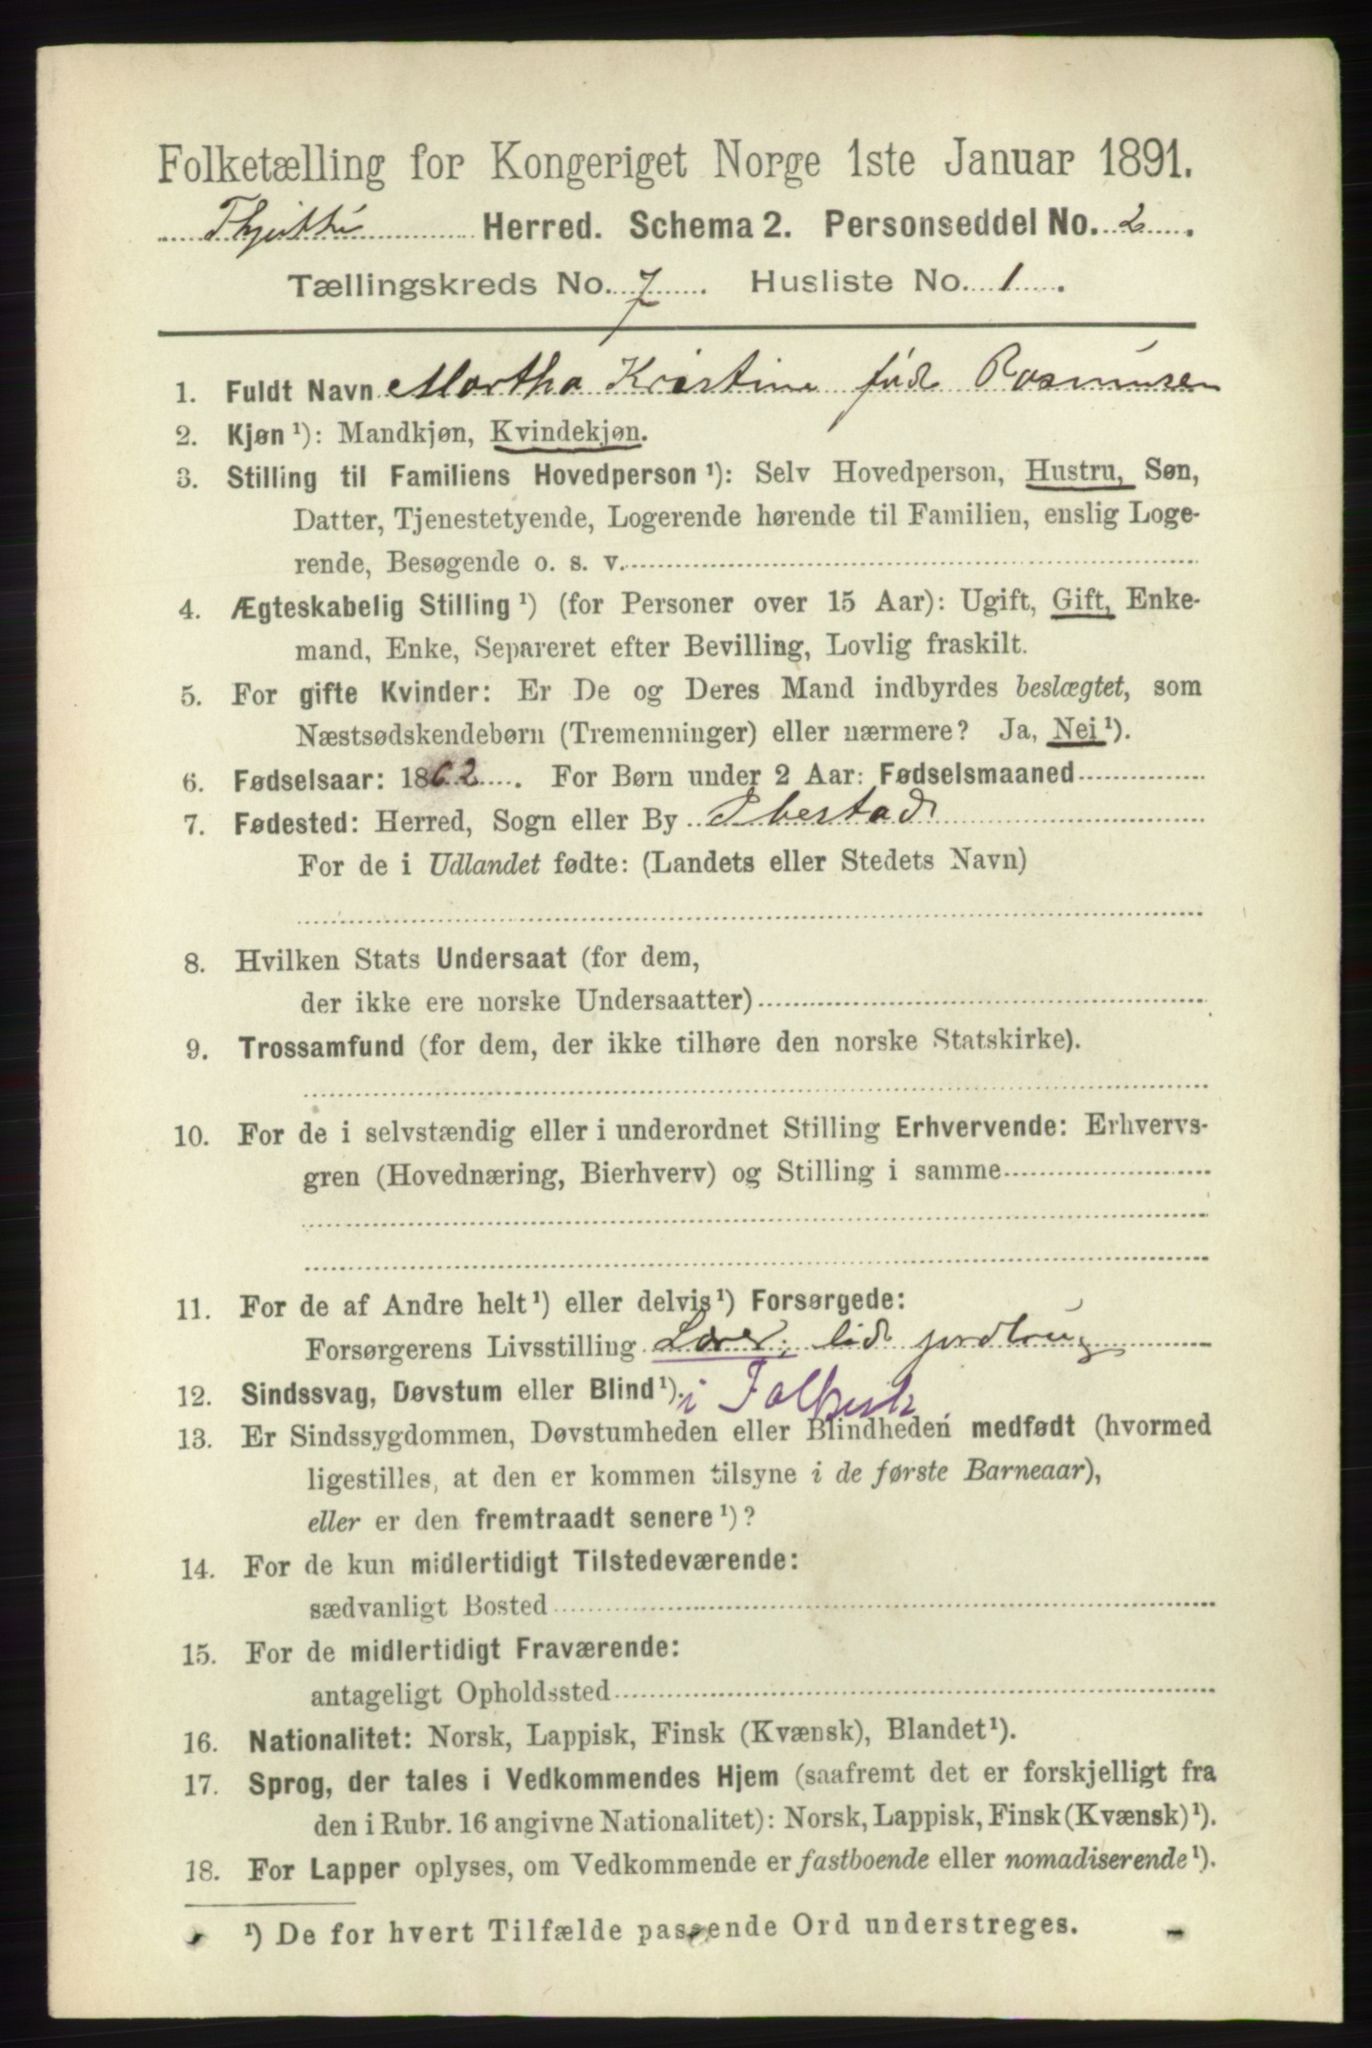 Folketælling for Kongeriget Norge 1ste Januar 1891.
Herred. Schema 2. Personseddel No. 2.
Tællingskreds No. 7. Husliste No. 1.
1. Fuldt Navn Martha Kristine født Rasmusen
2. Kjøn ¹): Mandkjøn, Kvindekjøn.
3. Stilling til Familiens Hovedperson ¹): Selv Hovedperson, Hustru, Søn,
Datter, Tjenestetyende, Logerende hørende til Familien, enslig Loge-
rende, Besøgende o. s. v.
4. Ægteskabelig Stilling ¹) (for Personer over 15 Aar): Ugift, Gift, Enke-
mand, Enke, Separeret efter Bevilling, Lovlig fraskilt.
5. For gifte Kvinder: Er De og Deres Mand indbyrdes beslægtet, som
Næstsødskendebørn (Tremenninger) eller nærmere? Ja, Nei ¹).
6. Fødselsaar: 1862. For Børn under 2 Aar: Fødselsmaaned
7. Fødested: Herred, Sogn eller By Ibestad
For de i Udlandet fødte: (Landets eller Stedets Navn)
8. Hvilken Stats Undersaat (for dem,
der ikke ere norske Undersaatter)
9. Trossamfund (for dem, der ikke tilhøre den norske Statskirke).
10. For de i selvstændig eller i underordnet Stilling Erhvervende: Erhvervs-
gren (Hovednæring, Bierhverv) og Stilling i samme
11. For de af Andre helt ¹) eller delvis ¹) Forsørgede:
Forsørgerens Livsstilling Lærer, lidt jordbrug
12. Sindssvag, Døvstum eller Blind ¹). i
13. Er Sindssygdommen, Døvstumheden eller Blindheden medfødt (hvormed
ligestilles, at den er kommen tilsyne i de første Barneaar),
eller er den fremtraadt senere ¹)?
14. For de kun midlertidigt Tilstedeværende:
sædvanligt Bosted
15. For de midlertidigt Fraværende:
antageligt Opholdssted
16. Nationalitet: Norsk, Lappisk, Finsk (Kvænsk), Blandet ¹).
17. Sprog, der tales i Vedkommendes Hjem (saafremt det er forskjelligt fra
den i Rubr. 16 angivne Nationalitet): Norsk, Lappisk, Finsk (Kvænsk) ¹).
18. For Lapper oplyses, om Vedkommende er fastboende eller nomadiserende ¹).
¹) De for hvert Tilfælde passende Ord understreges.